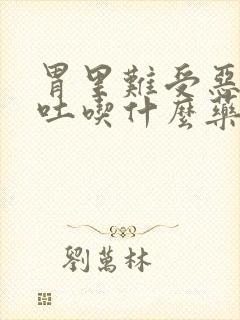 胃里難受惡
吐喫什麽藥
劉萬林